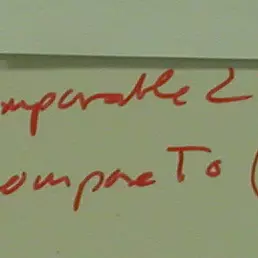 omparable <
ompareTo (